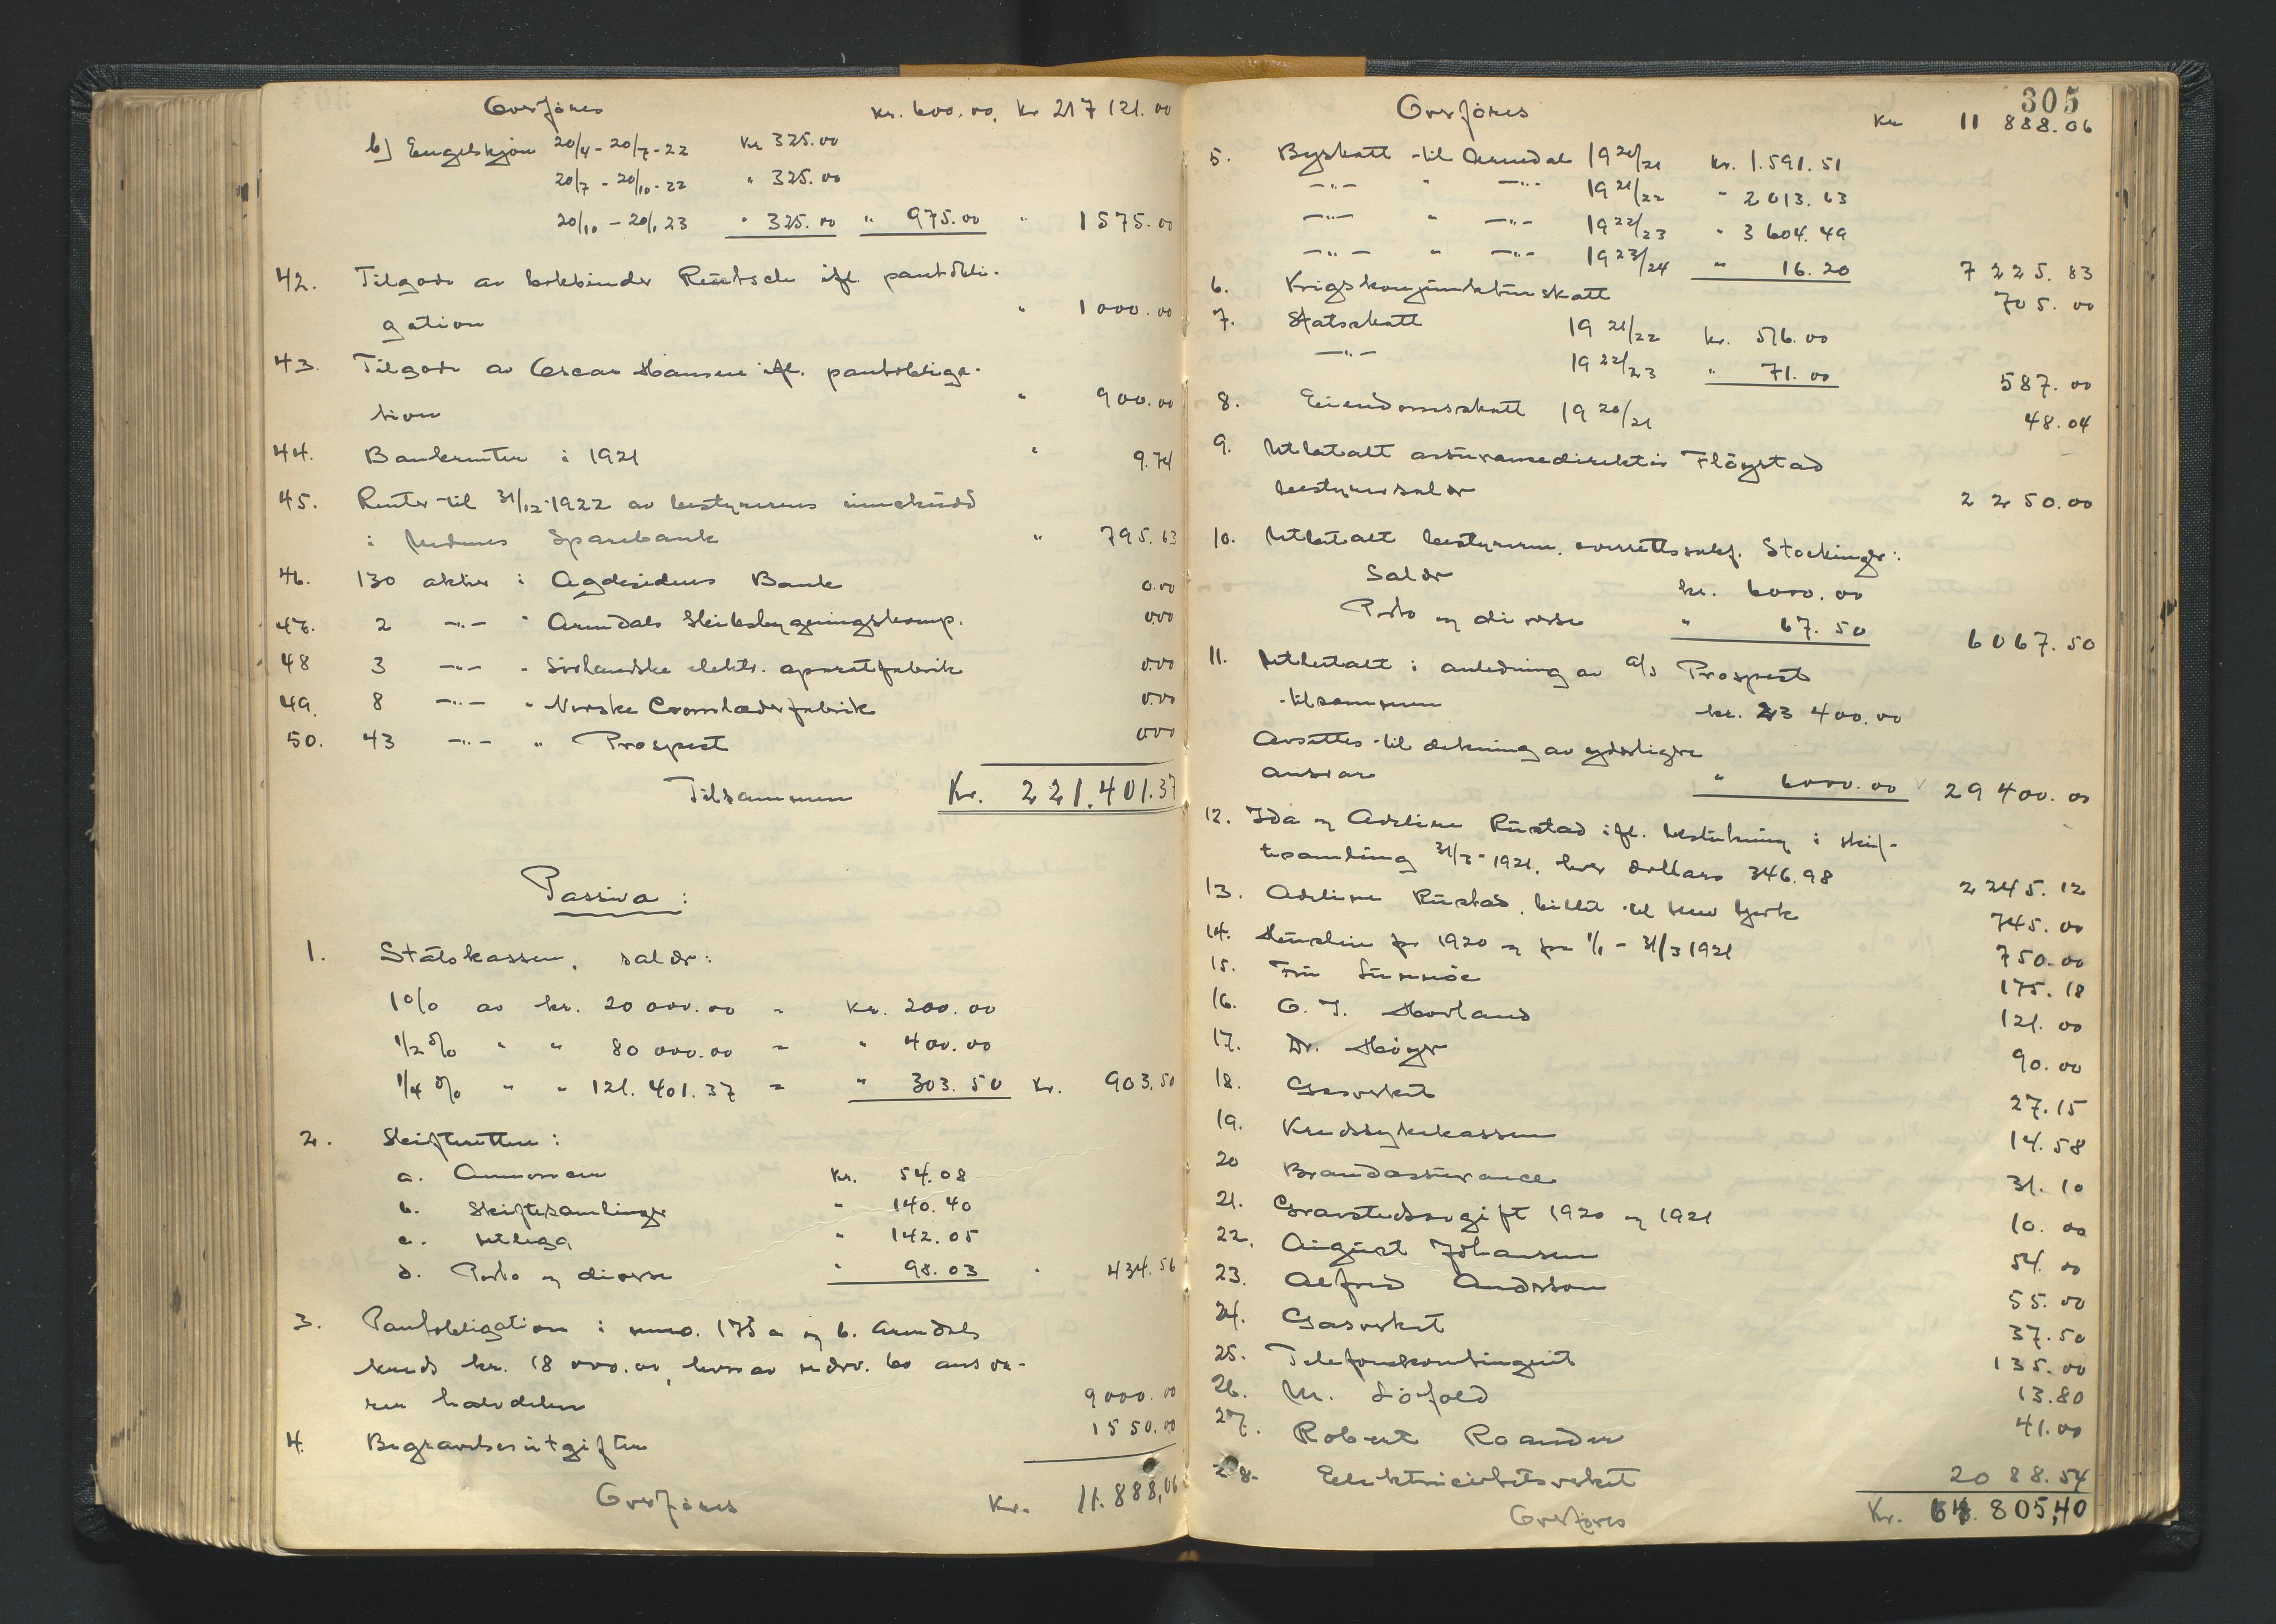 Overføres kr. 600.00. Kr 217 121.00
b) Engelskjøn 20/4 - 20/7-22 Kr 325.00
20/7 - 20/10-22 " 325.00
20/10 - 20/1 23 " 325.00 " 975.00 " 1575.00
42. Tilgode av bokbinder Rütsch ifl. pantobli-
gation " 1000.00
43. Tilgode av Oscar Hansen ifl. pantobliga-
tion " 900.00
44. Bankrenter i 1921 " 9.74
45. Renter til 31/12-1922 av bestyrerens innskudd
i Sparebank " 795.63
46. 130 aktier i Agdesidens Bank 0.00
47. 2 -"- " Arendals Skibsbygningskomp. 000
48 3 -"- " Sörlandske elektr. aparatfabrik 0.00
49. 8 -"- " Norske Cromlæderfabrik 0.00
50. 43 -"- " Prospect 000
Tilsammen Kr. 221.401.37
Passiva:
1. Statskassen, salær:
1% av kr. 20 000.00 = Kr. 200.00
1/2 % " " 80 000.00 = " 400.00
1/4 % " " 121.401.37 = " 303.50 Kr. 903.50
2. Skifteretten:
a. Annoncer Kr. 54.08
b. Skiftesamlinger " 140.40
c. Utlegg " 142.05
d. Porto og diverse " 98.03 " 434.56
3. Pantobligation i mno. 175 a og b. Arendals
kr. 18 000.00, hvorav bo ansva-
rer halvdelen 9000.00
4. Begravelsesutgifter 1550.00
Overføres Kr. 11.888,06
305
Overføres Kr 11 888.06
5. Byskatt til Arendal 1920/21 kr. 1.591.51
-"- " -"- 1921/22 " 2013.63
-"- " -"- 1922/23 " 3604.49
-"- " -"- 1923/24 " 16.20 7225.83
6. Krigskonjunkturskatt 705.00
7. Statsskatt 1921/22 kr. 516.00
-"- 1922/23 " 71.00 587.00
8. Eiendomsskatt 1920/21 48.04
9. Utbetalt assurancedirektør Flöystad
bestyrersalær 2250.00
10. Utbetalt bestyreren, overrettssakf. Stockinger:
Salær kr. 6000.00
Porto og diverse " 67.50 6067.50
11. Utbetalt i anledning av A/S Prospect
tilsammen kr. 23 400.00
Avsettes til dekning av yderligre
ansvar " 6000.00 v 29 400.00
12. Ida og Adeline Rustad ifl. beslutning i skif-
tesamling 31/3-1921, hver dollars 346.98 2245.12
13. Adeline Rustad, billit til New York 745.00
14. Husleie for 1920 og fra 1/1 - 31/3 1921 750.00
15. Fru 175.18
16. O. T. Hovland 121.00
17. Dr. Høyer 90.00
18. Gasverket 27.15
19. Kredssykekassen 14.58
20 Brandassurance 31.10
21. Gravstedsavgift 1920 og 1921 10.00
22. August Johansen 54.00
23. Alfred Anderson 55.00
24. Gasverket 37.50
25. Telefonkontingent 135.00
26. M. Löfold 13.80
27. Robert Roander 41.00
28. Elektricitetsverket 2088.54
Overføres Kr. 64.805,40